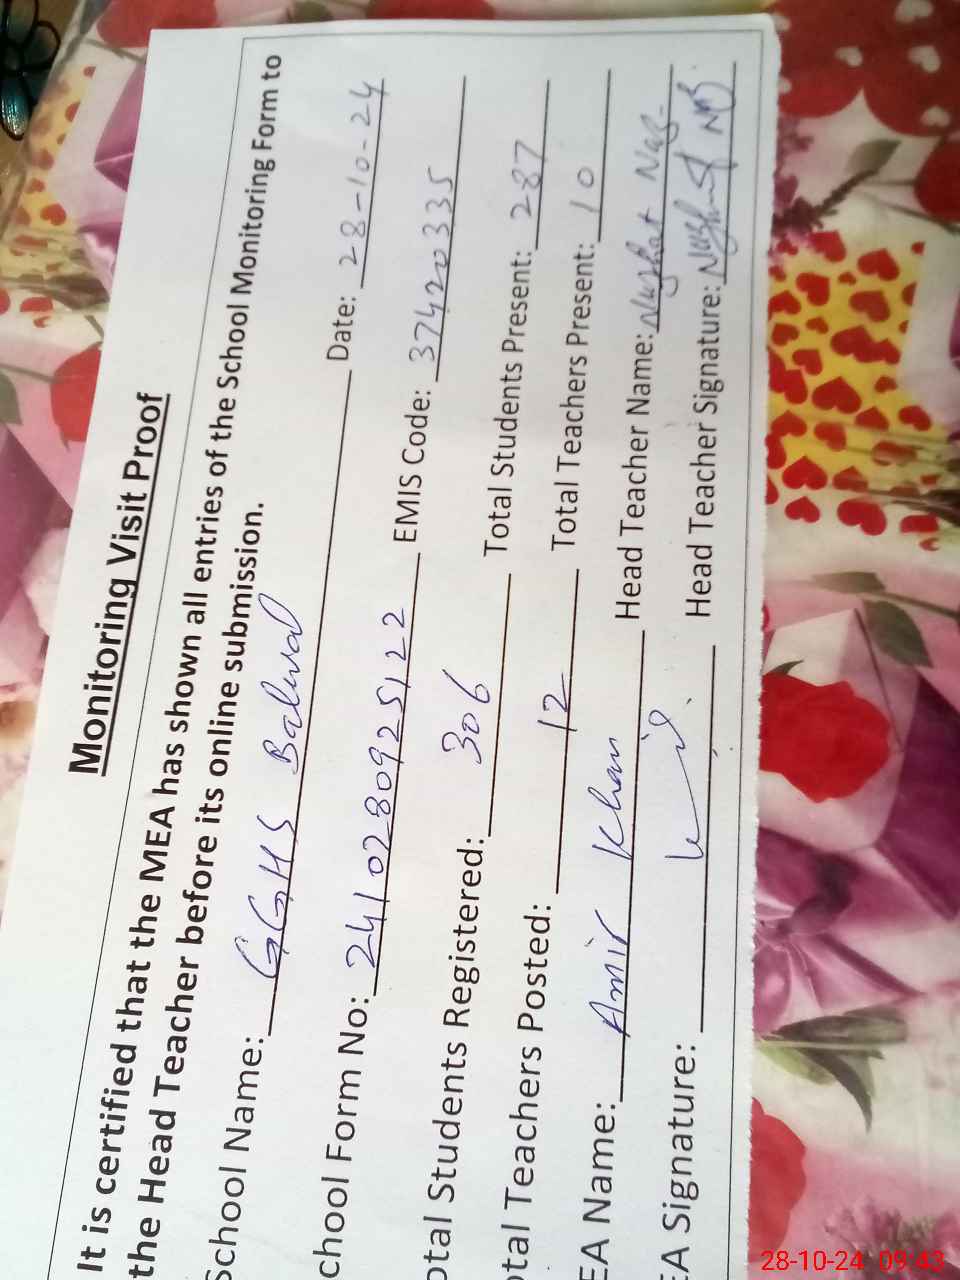 Monitoring Visit Proof
It is certified that the MEA has shown all entries of the School Monitoring Form to
the Head Teacher before its online submission.
School Name: GGHS Balwal Date: 28-10-24
chool Form No: 2410280925122 EMIS Code: 37420335
otal Students Registered: 306 Total Students Present: 287
otal Teachers Posted: 12 Total Teachers Present: 10
EA Name: Amir Khan Head Teacher Name: Nuzhat Naz
EA Signature: Head Teacher Signature:
28-10-24 09:43